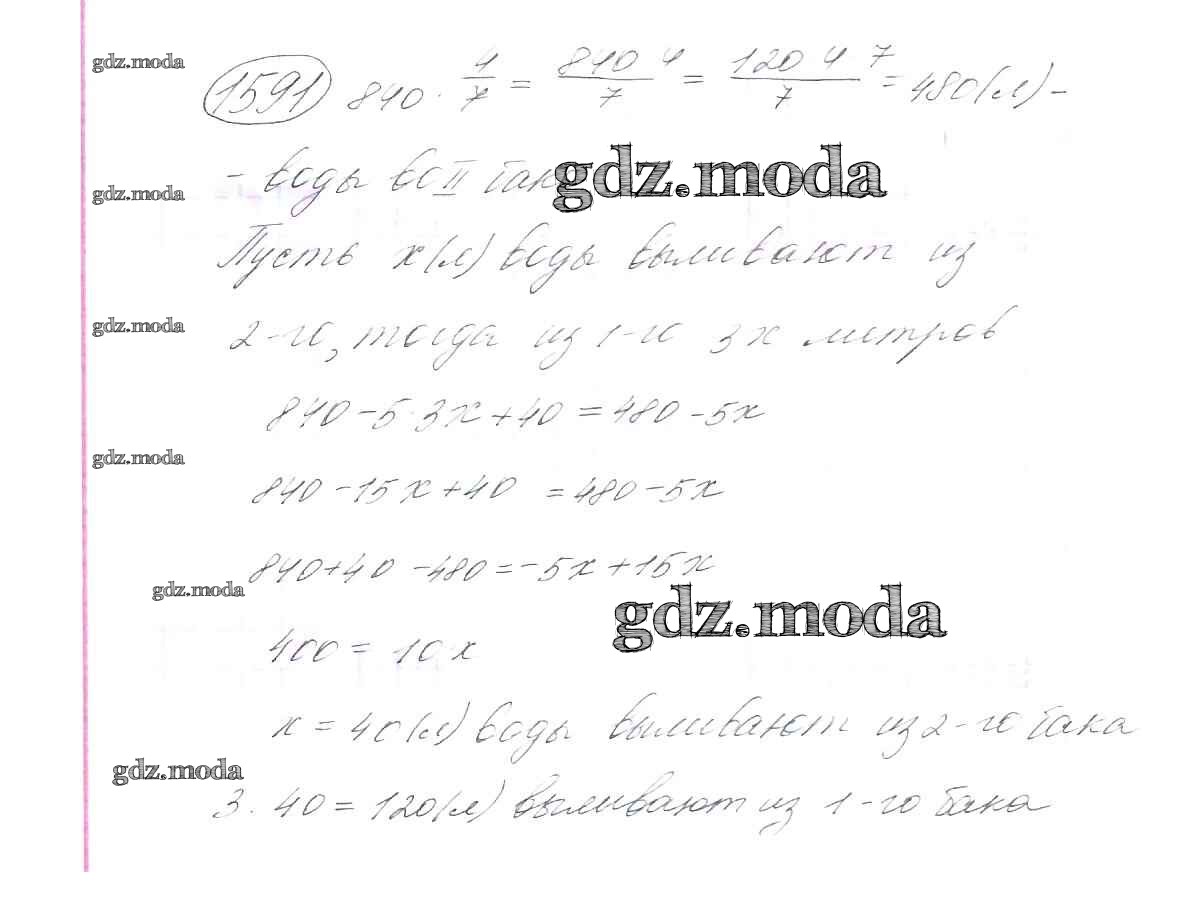 gdz.moda
1591 840 · 4/7 = 840 4/7 = 120 4 7/7 = 480 (л) -
gdz.moda
- воды во II бак
gdz.moda
Пусть x (л) воды выливают из
gdz.moda
2-го, тогда из 1-го 3x литров
840 - 5 · 3x + 40 = 480 - 5x
gdz.moda
840 - 15x + 40 = 480 - 5x
840 + 40 - 480 = -5x + 15x
gdz.moda
gdz.moda
400 = 10x
x = 40 (л) воды выливают из 2-го бака
gdz.moda
3 · 40 = 120 (л) выливают из 1-го бака